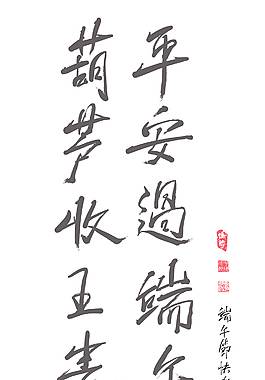 平安過端午
葫芦收王
端午節快